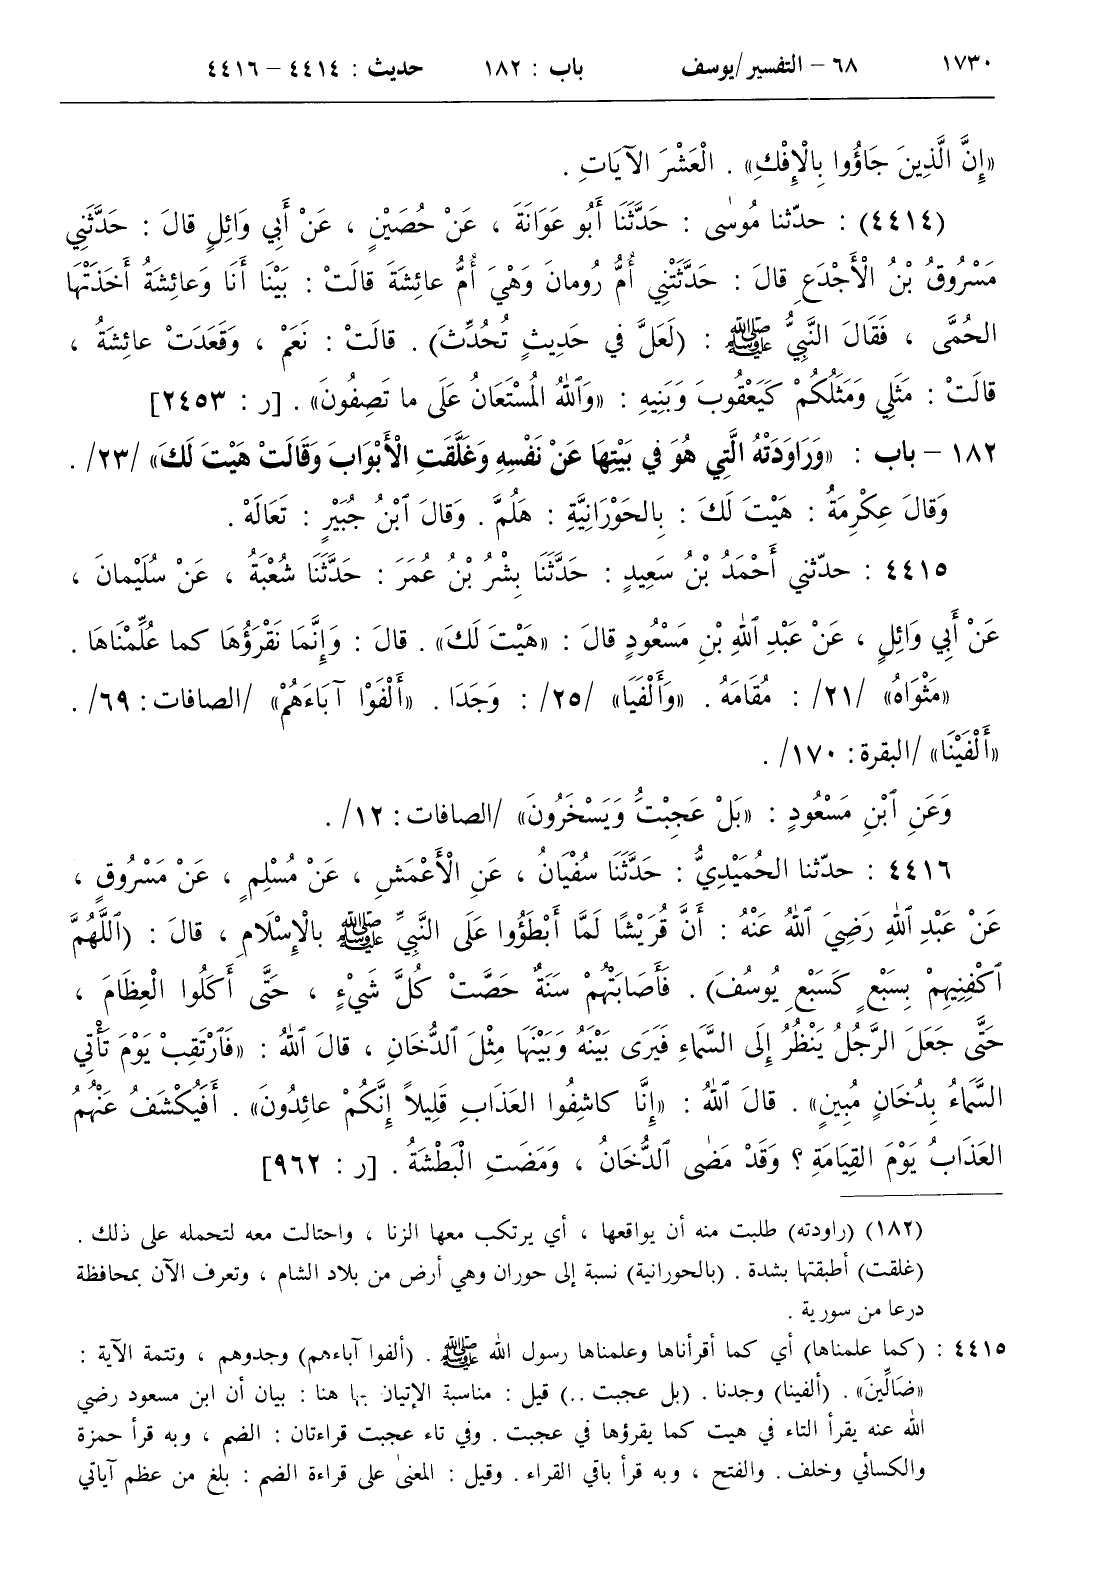 ١٧٣٠ ٦٨ – التفسير/يوسف باب : ١٨٢ حديث : ٤٤١٤ – ٤٤١٦
«إِنَّ الَّذِينَ جَاؤُوا بِالْإِفْكِ» . الْعَشْرَ الآيَاتِ .
(٤٤١٤) : حدّثنا مُوسٰى : حَدَّثَنَا أَبُو عَوَانَةَ ، عَنْ حُصَيْنٍ ، عَنْ أَبِي وَائِلٍ قالَ : حَدَّثَنِي
مَسْرُوقُ بْنُ الْأَجْدَعِ قالَ : حَدَّثَتْنِي أُمُّ رُومانَ وَهْيَ أُمُّ عائِشَةَ قالَتْ : بَيْنَا أَنَا وَعائِشَةُ أَخَذَتْهَا
الحُمَّى ، فَقَالَ النَّبِيُّ ﷺ : (لَعَلَّ في حَدِيثٍ تُحُدِّثَ) . قالَتْ : نَعَمْ ، وَقَعَدَتْ عائِشَةُ ،
قالَتْ : مَثَلِي وَمَثَلُكُمْ كَيَعْقُوبَ وَبَنِيهِ : «وَٱللهُ المُسْتَعَانُ عَلَى ما تَصِفُونَ» . [ر : ٢٤٥٣]
١٨٢ – باب : «وَرَاوَدَتْهُ الَّتِي هُوَ في بَيْتِهَا عَنْ نَفْسِهِ وَغَلَّقَتِ الْأَبْوَابَ وَقَالَتْ هَيْتَ لَكَ» /٢٣/ .
وَقالَ عِكْرِمَةُ : هَيْتَ لَكَ : بِالحَوْرَانِيَّةِ : هَلُمَّ . وَقالَ ٱبْنُ جُبَيْرٍ : تَعَالَهْ .
٤٤١٥ : حدّثني أَحْمَدُ بْنُ سَعِيدٍ : حَدَّثَنَا بِشْرُ بْنُ عُمَرَ : حَدَّثَنَا شُعْبَةُ ، عَنْ سُلَيْمانَ ،
عَنْ أَبِي وَائِلٍ ، عَنْ عَبْدِ ٱللهِ بْنِ مَسْعُودٍ قالَ : «هَيْتَ لَكَ» . قالَ : وَإِنَّمَا نَقْرَؤُهَا كما عُلِّمْنَاهَا .
«مَثْوَاهُ» /٢١/ : مُقَامَهُ . «وَأَلْفَيَا» /٢٥/ : وَجَدَا . «أَلْفَوْا آبَاءَهُمْ» /الصافات: ٦٩/ .
«أَلْفَيْنَا» /البقرة: ١٧٠/ .
وَعَنِ ٱبْنِ مَسْعُودٍ : «بَلْ عَجِبْتُ وَيَسْخَرُونَ» /الصافات: ١٢/ .
٤٤١٦ : حدّثنا الحُمَيْدِيُّ : حَدَّثَنَا سُفْيَانُ ، عَنِ الْأَعْمَشِ ، عَنْ مُسْلِمٍ ، عَنْ مَسْرُوقٍ ،
عَنْ عَبْدِ ٱللهِ رَضِيَ ٱللهُ عَنْهُ : أَنَّ قُرَيْشًا لَمَّا أَبْطَؤُوا عَلَى النَّبِيِّ ﷺ بِالْإِسْلَامِ ، قالَ : (ٱللَّهُمَّ
ٱكْفِنِيهِمْ بِسَبْعٍ كَسَبْعِ يُوسُفَ) . فَأَصَابَتْهُمْ سَنَةٌ حَصَّتْ كُلَّ شَيْءٍ ، حَتَّى أَكَلُوا الْعِظَامَ ،
حَتَّى جَعَلَ الرَّجُلُ يَنْظُرُ إِلَى السَّمَاءِ فَيَرَى بَيْنَهُ وَبَيْنَهَا مِثْلَ ٱلدُّخَانِ ، قالَ ٱللهُ : «فَٱرْتَقِبْ يَوْمَ تَأْتِي
السَّمَاءُ بِدُخَانٍ مُبِينٍ» . قالَ ٱللهُ : «إِنَّا كاشِفُوا العَذَابِ قَلِيلاً إِنَّكُمْ عائِدُونَ» . أَفَيُكْشَفُ عَنْهُمُ
العَذَابُ يَوْمَ القِيَامَةِ ؟ وَقَدْ مَضٰى ٱلدُّخَانُ ، وَمَضَتِ الْبَطْشَةُ . [ر : ٩٦٢]
(١٨٢) (راودته) طلبت منه أن يواقعها ، أي يرتكب معها الزنا ، واحتالت معه لتحمله على ذلك .
(غلقت) أطبقتها بشدة . (بالحورانية) نسبة إلى حوران وهي أرض من بلاد الشام ، وتعرف الآن بمحافظة
درعا من سورية .
٤٤١٥ : (كما علمناها) أي كما أقرأناها وعلمناها رسول الله ﷺ . (ألفوا آباءهم) وجدوهم ، وتتمة الآية :
«ضَالِّينَ» . (ألفينا) وجدنا . (بل عجبت ..) قيل : مناسبة الإتيان بها هنا : بيان أن ابن مسعود رضي
الله عنه يقرأ التاء في هيت كما يقرؤها في عجبت . وفي تاء عجبت قراءتان : الضم ، وبه قرأ حمزة
والكسائي وخلف . والفتح ، وبه قرأ باقي القراء . وقيل : المعنى على قراءة الضم : بلغ من عظم آياتي